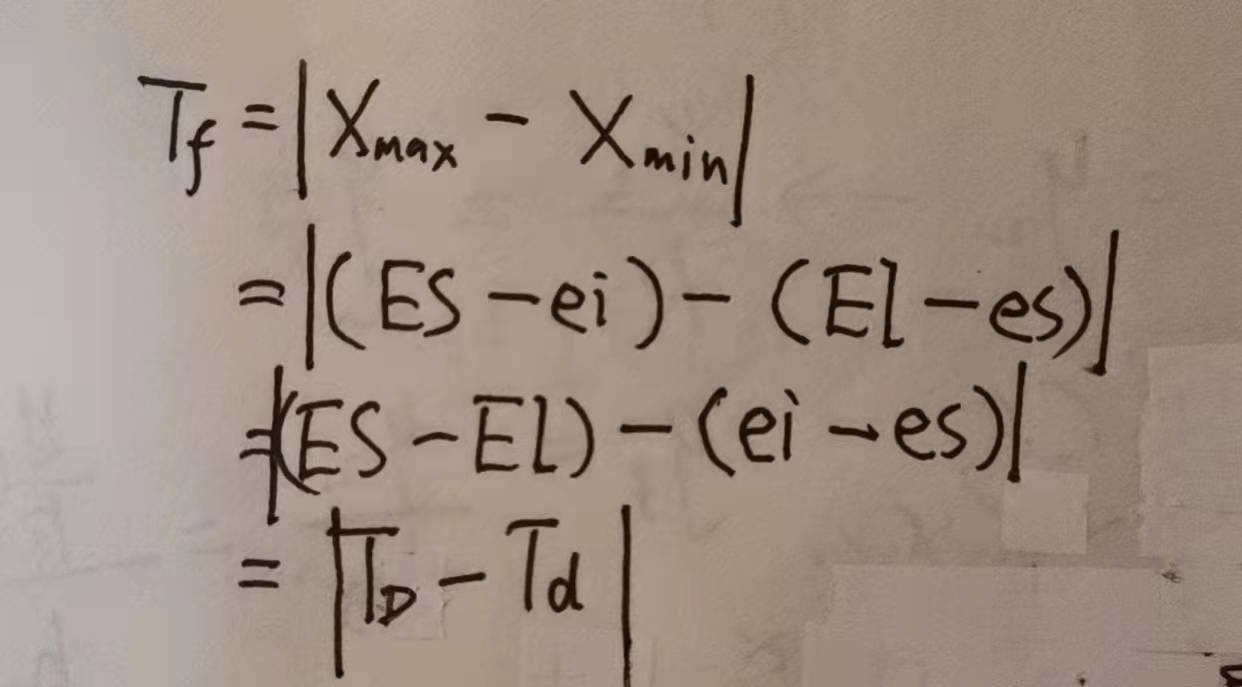 T_f = |X_max - X_min|
= |(ES - ei) - (El - es)|
= |(ES - El) - (ei - es)|
= |T_D - T_d|